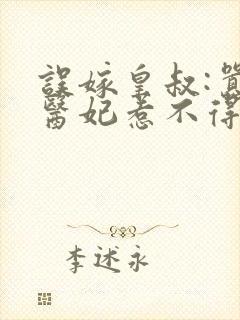 誤嫁皇叔:囂
醫妃惹不得
李述永